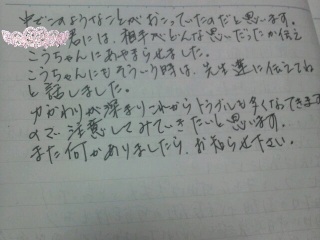 中でこのようなことがおこっていたのだと思います。
君には、相手がどんな思いだったか伝え
こうちゃんにあやまらせました。
こうちゃんにもそういう時は、先生達に伝えてね
と話しました。
かかわりが深まりこれからトラブルも多くなてきます
ので注意してみていきたいと思います。
また何かありましたら、お知らせ下さい。